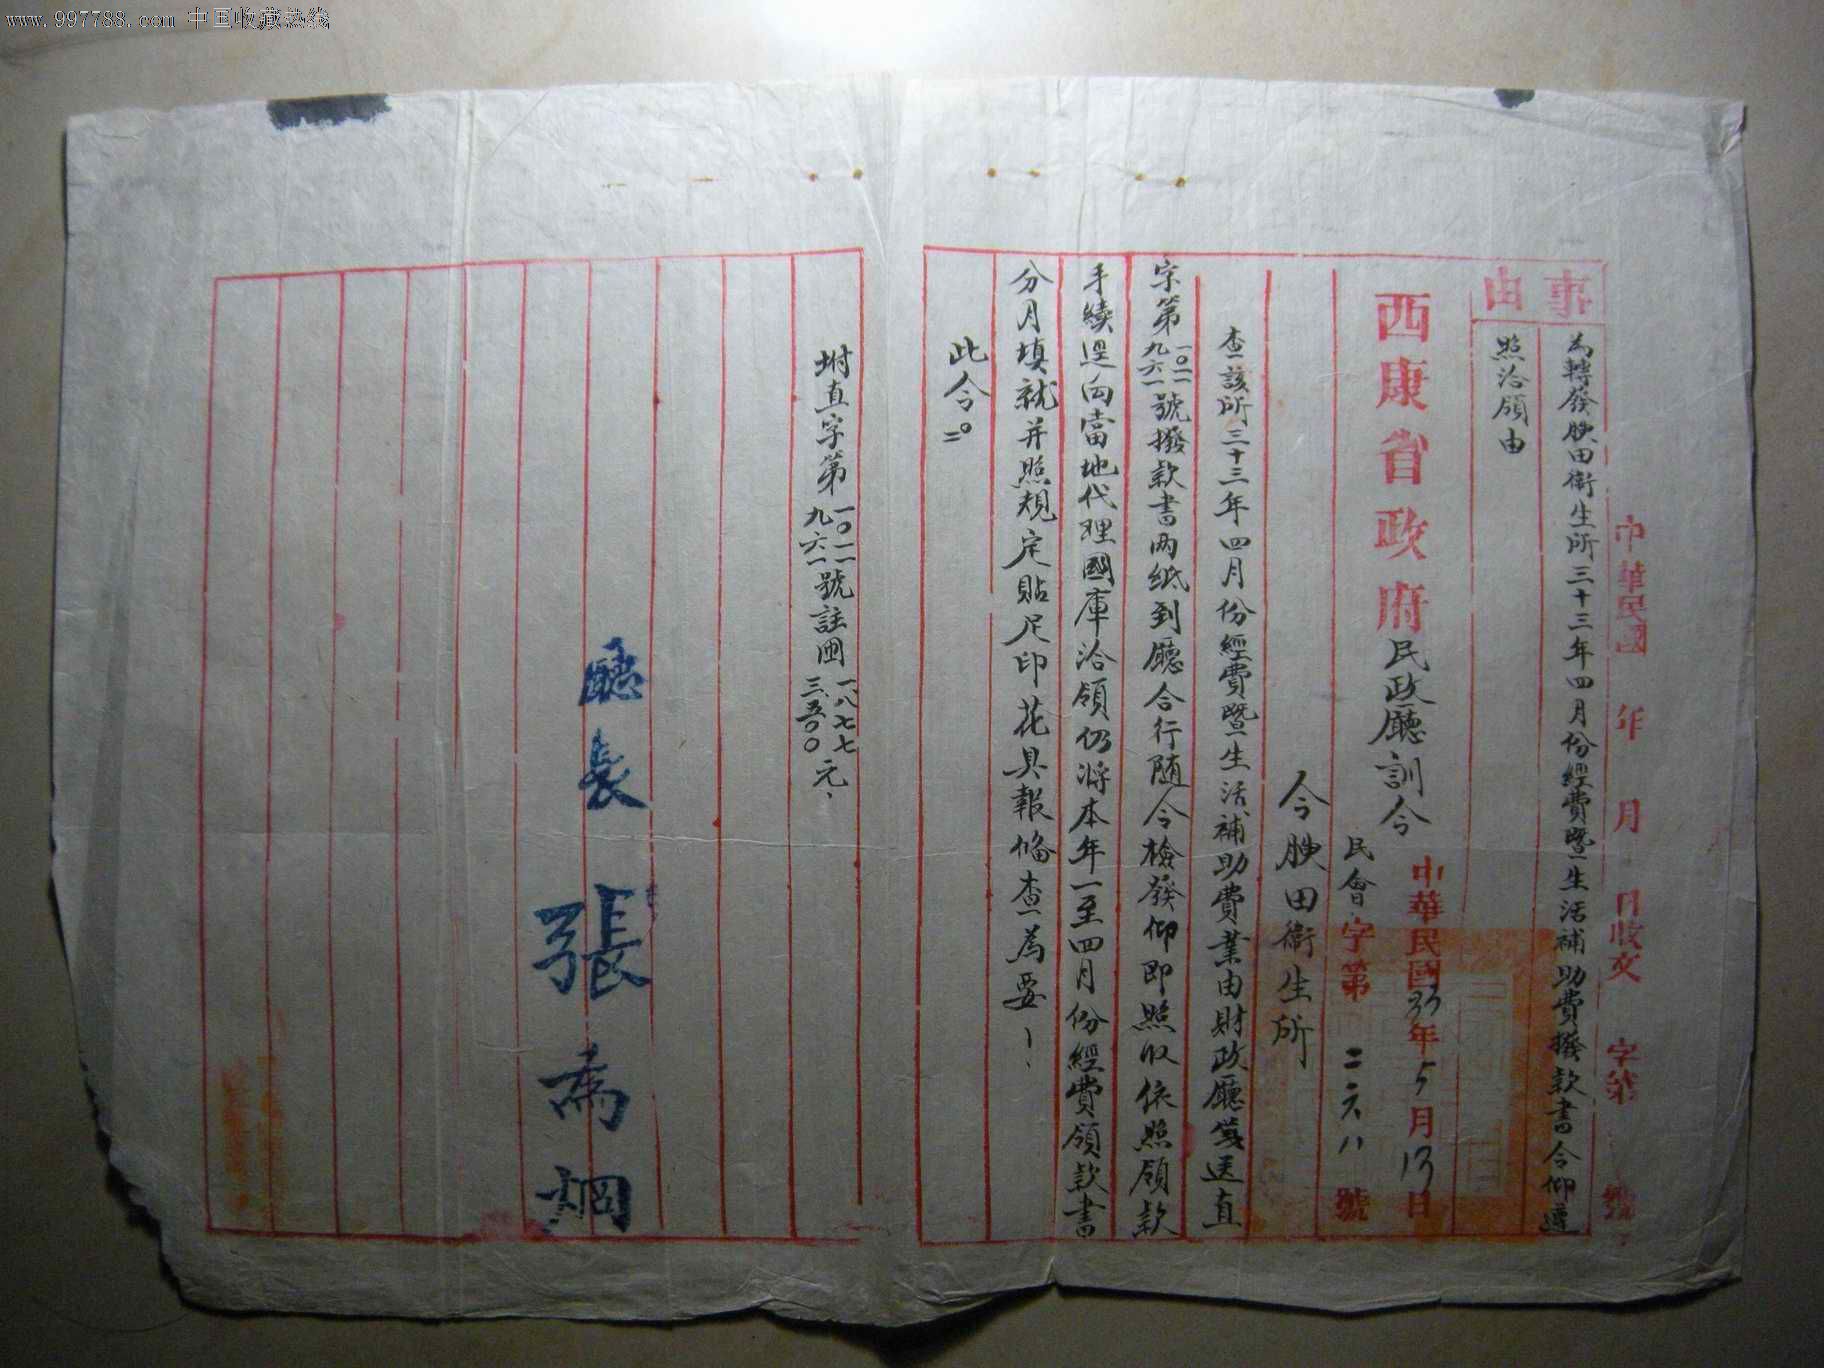 www.997788.com 中国收藏热线
中華民國 年 月 日收文 字第 號
事由
為轉發腴田衛生所三十三年四月份經費暨生活補助費撥款書令仰遵
照洽領由
西康省政府民政廳訓令
中華民國33年5月13日
民會字第二六八號
令腴田衛生所
查該所三十三年四月份經費暨生活補助費業由財政廳箋送直
字第一〇一一九六一號撥款書两紙到廳合行随令檢發仰即照收依照領款
手續逕向當地代理國庫洽領仍將本年一至四月份經費領款書
分月填就并照規定貼足印花具報俻查為要
此令
坿直字第一〇一一九六一號註囲一八七七三五〇〇元
廳長 張為炯